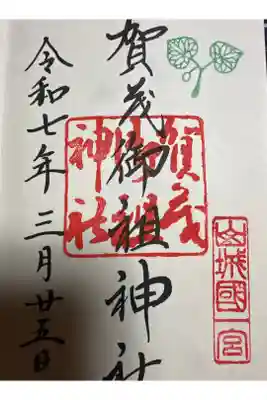 山城國一宮
賀茂御祖神社
賀茂御祖神社
令和七年三月廿五日